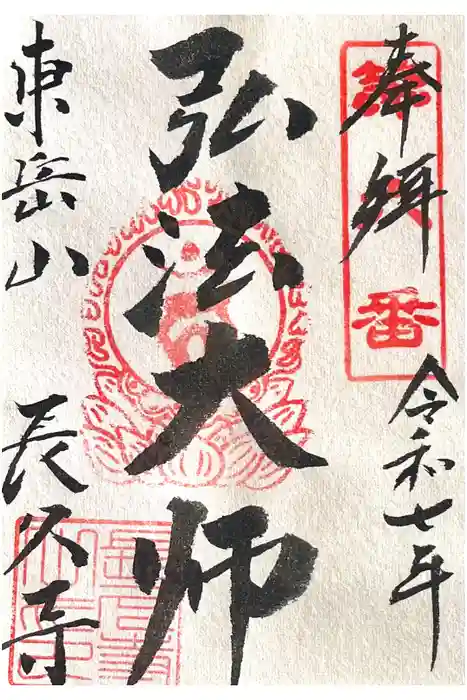 奉拝
令和七年
弘法大師
東岳山
長久寺
番